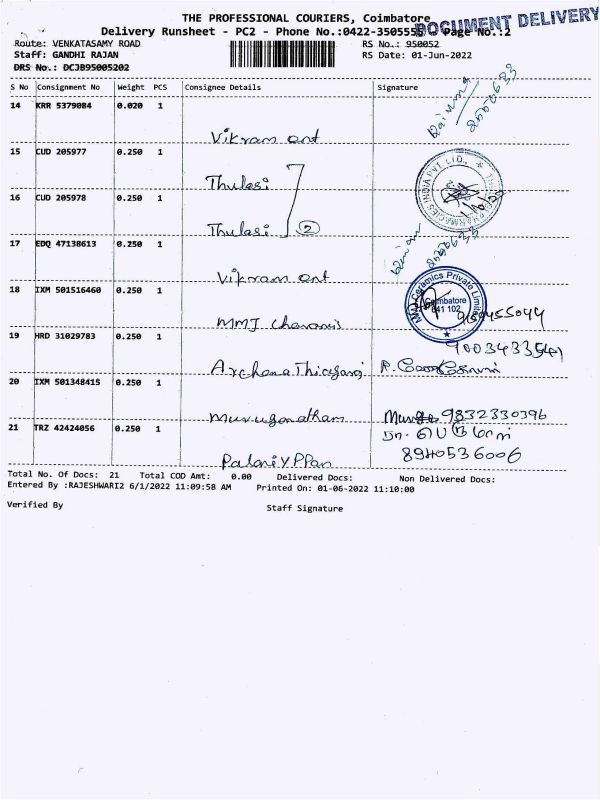 THE PROFESSIONAL COURIERS, Coimbatore
DOCUMENT DELIVERY
Delivery Runsheet - PC2 - Phone No.:0422-350555 Page No.:2
Route: VENKATASAMY ROAD
RS No.: 950052
Staff: GANDHI RAJAN
RS Date: 01-Jun-2022
DRS No.: DCJB95005202
S No Consignment No Weight PCS Consignee Details Signature
14 KRR 5379084 0.020 1
Vikram ont
15 CUD 205977 0.250 1
Thulasi
16 CUD 205978 0.250 1
Thulasi 2
INDIA PVT LTD.,
17 EDQ 47138613 0.250 1
Vikram ont
18 IXM 501516460 0.250 1
MMJ
Ceramics Private Limited
Coimbatore
641 102
19 HRD 31029783 0.250 1
Archana
20 IXM 501348415 0.250 1
Muruganatham 9832330396
21 TRZ 42424056 0.250 1
PalaniyPPan
8940536006
Total No. Of Docs: 21 Total COD Amt: 0.00 Delivered Docs: Non Delivered Docs:
Entered By :RAJESHWARI2 6/1/2022 11:09:58 AM Printed On: 01-06-2022 11:10:00
Verified By
Staff Signature